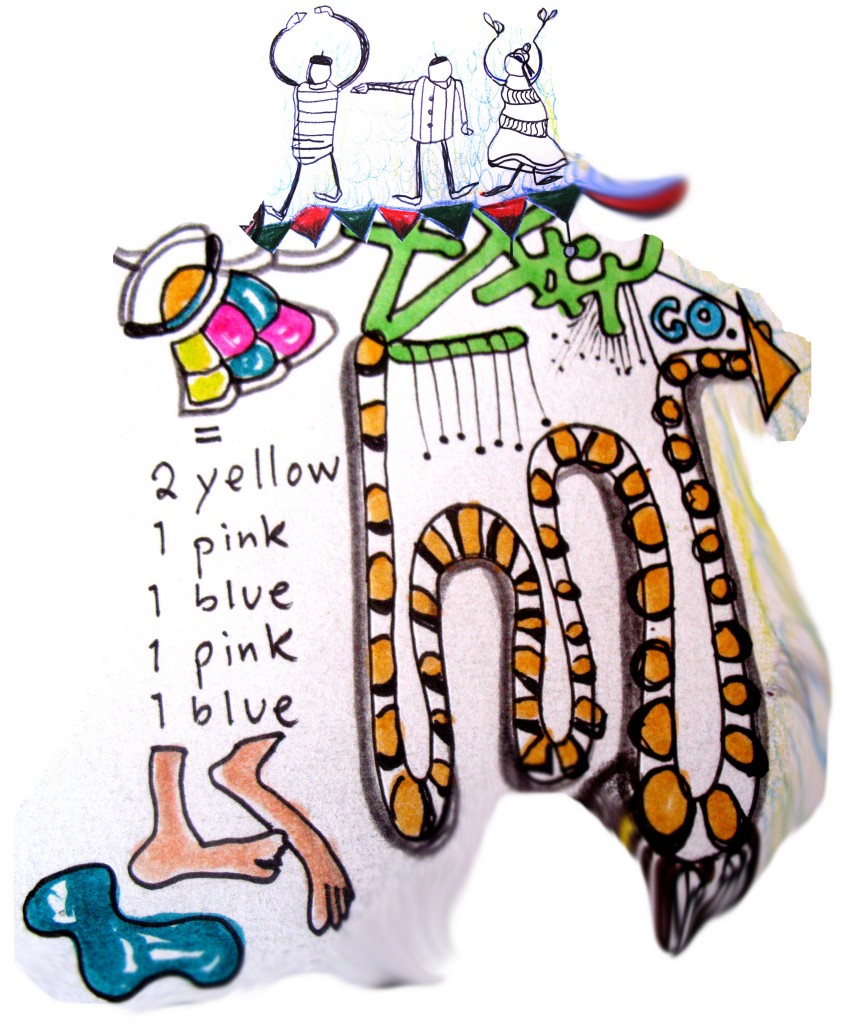 GO.
=
2 yellow
1 pink
1 blue
1 pink
1 blue